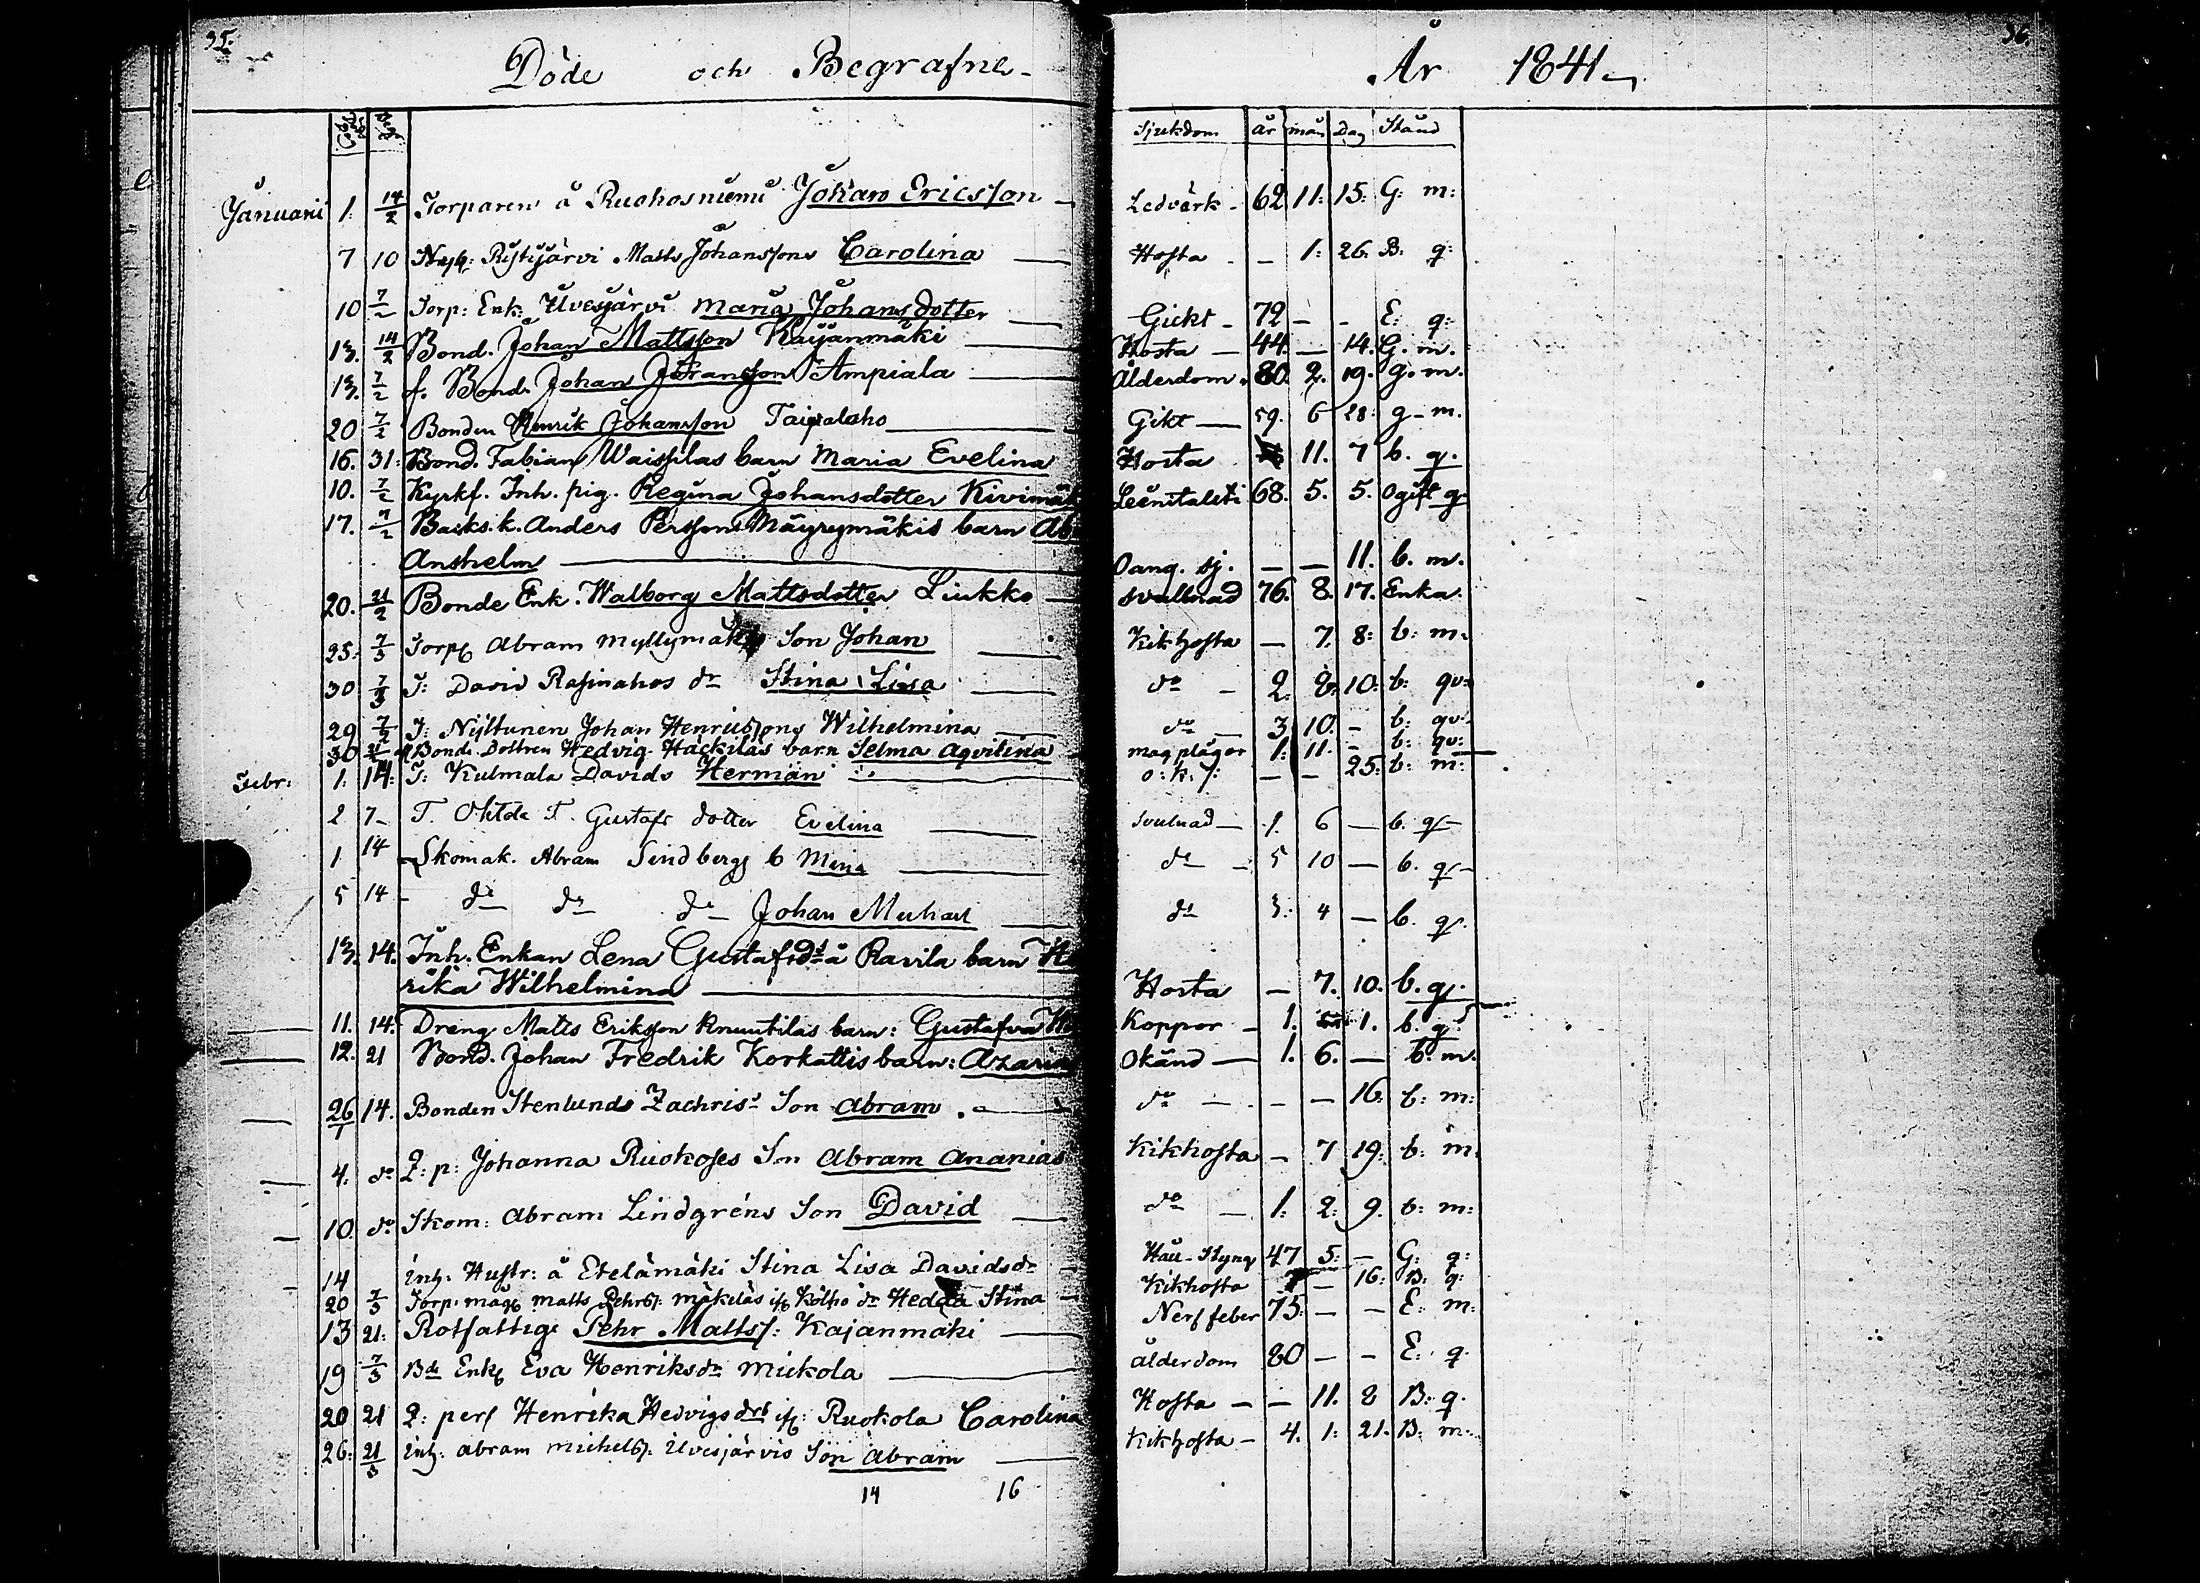 35. 36.
Döde och Begrafne År 1841
Sjukdom år mån Dag Stånd
Januarii 1. 14/2 Torparen å Ruohosniemi Johan Ericsson — Ledvärk - 62 11: 15: G: m:
7 10 Ristijärvi Matts Johanssons Carolina — Hosta - - 1: 26. B. q:
10 7/2 Torp: Enk: Ilvesjärvi Maria Johansdotter — Gickt - 72 - - E: q:
13. 14/2 Bond. Johan Mattsson Kajanmäki — Hosta — 44. — 14. G. m.
13. 7/2 f. Bond. Johan Göransson Ampiala — Ålderdom. 80. 2. 19. g. m.
20 7/2 Bonden Henrik Johansson Taipalaho — Gikt — 59. 6 28: g - m.
16. 31. Bond. Fabian Waissilas barn Maria Evelina Hosta 11. 7 b. q.
10. 7/2 Kyrkf. Inh. pig. Regina Johansdotter 68. 5. 5. Ogift q
17. 7/2 Backs. k. Anders Perssons Mäyrymäkis barn
Anshelm — Oang. sj. — — 11. b. m.
20. 21/2 Bonde Enk. Walborg Mattsdotter Liukko — svullnad 76. 8. 17. Enka.
25: 7/3 Torp Abram Son Johan — Kikhosta — 7. 8: b: m.
30 7/3 T: David Rasinahos dr Stina Lisa — do - 2. 10: b: qv:
29 7/2 T: Nyltunen Johan Henricssons Wilhelmina — do — 3 10. - b: qv:
30 Bond. Dottren Hedvig Häckiläs barn Selma Aqvilina magplågor 1: 11. - b: qv:
Febr: 1. 14: T: Kulmala Davids Herman — o: k: s: — — 25: b: m:
2 7 - T. Ohtola T. Gustafs dotter Evelina — Svulnad — 1. 6 — b. q -
1 14 Skomak. Abram Lindbergs b Mina — do - 5 10 — b. q -
5 14 - do do do Johan Michael — do 3. 4 — b. q.
13. 14. Inh. Enkan Lena Gustafsdr å Ravila barn
rika Wilhelmina — Hosta — 7. 10. b. q.
11. 14. Dräng Matts Eriksson Knuutilas barn: Gustafva Koppor - 1. 1. b. q
12. 21 Bond. Johan Fredrik Korkattis barn: Azaria Okänd — 1. 6. — b. m.
26/1 14. Bonden Stenlunds Zachris Son Abram. — do — - — 16: b: m:
4. do Q: p: Johanna Ruokojes Son Abram Ananias Kikhosta - 7 19: b: m.
10 do Skom: Abram Lindgréns Son David — do — 1: 2: 9. b: m:
14 inh: Hustr: å Etelämäki Stina Lisa Davidsdr Håll-Styng 47 5: - G: q:
20 7/3 Torp. måg Matts Pehrss. Mäkeläs Hedda Stina — Kikhosta — 16: B: q:
13 21: Rotfattige Pehr Mattss: Kajanmäki — Nerffeber 75: - - E: m:
19 7/3 Bde Enk Eva Henriksdr Mickola — ålderdom 80 - - E: q
20 21 Q: pers Henrika Hedvigsdrs Ruokola Carolina Hosta - - 11. 8 B: q.
26: 21/3 inh: Abram Michelss: Ilvesjärvis Son Abram — Kikhosta - 4. 1: 21. B: m.
14 16